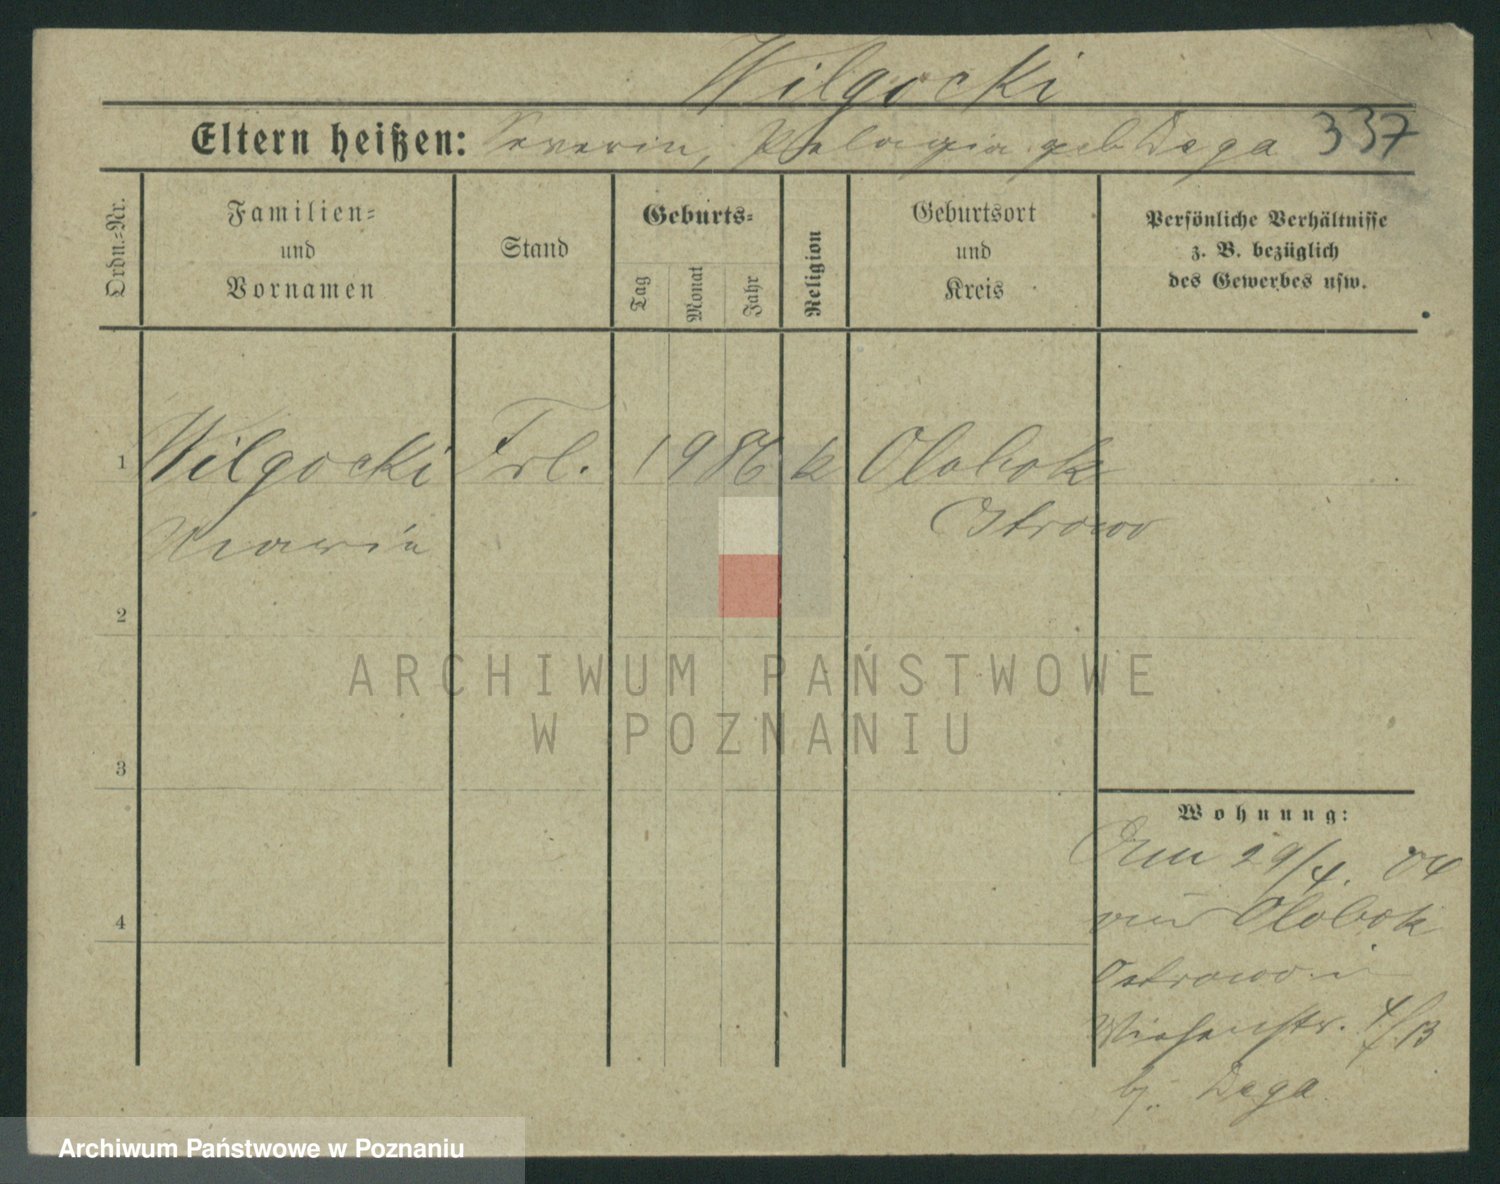 Wilgocki
Eltern heißen: Severin, Pelagia geb Dega 337
Ordn.-Nr.
Familien-
und
Vornamen
Stand
Geburts-
Tag
Monat
Jahr
Religion
Geburtsort
und
Kreis
Persönliche Verhältnisse
z. B. bezüglich
des Gewerbes usw.
1 Wilgocki Frl. 1 9 86 k Olobok
Marie Ostrowo
2
3
4
Wohnung:
29/4. 04
Olobok
Ostrowo
Wiesenstr. 4/13
bj. Dega
ARCHIWUM PAŃSTWOWE
W POZNANIU
Archiwum Państwowe w Poznaniu